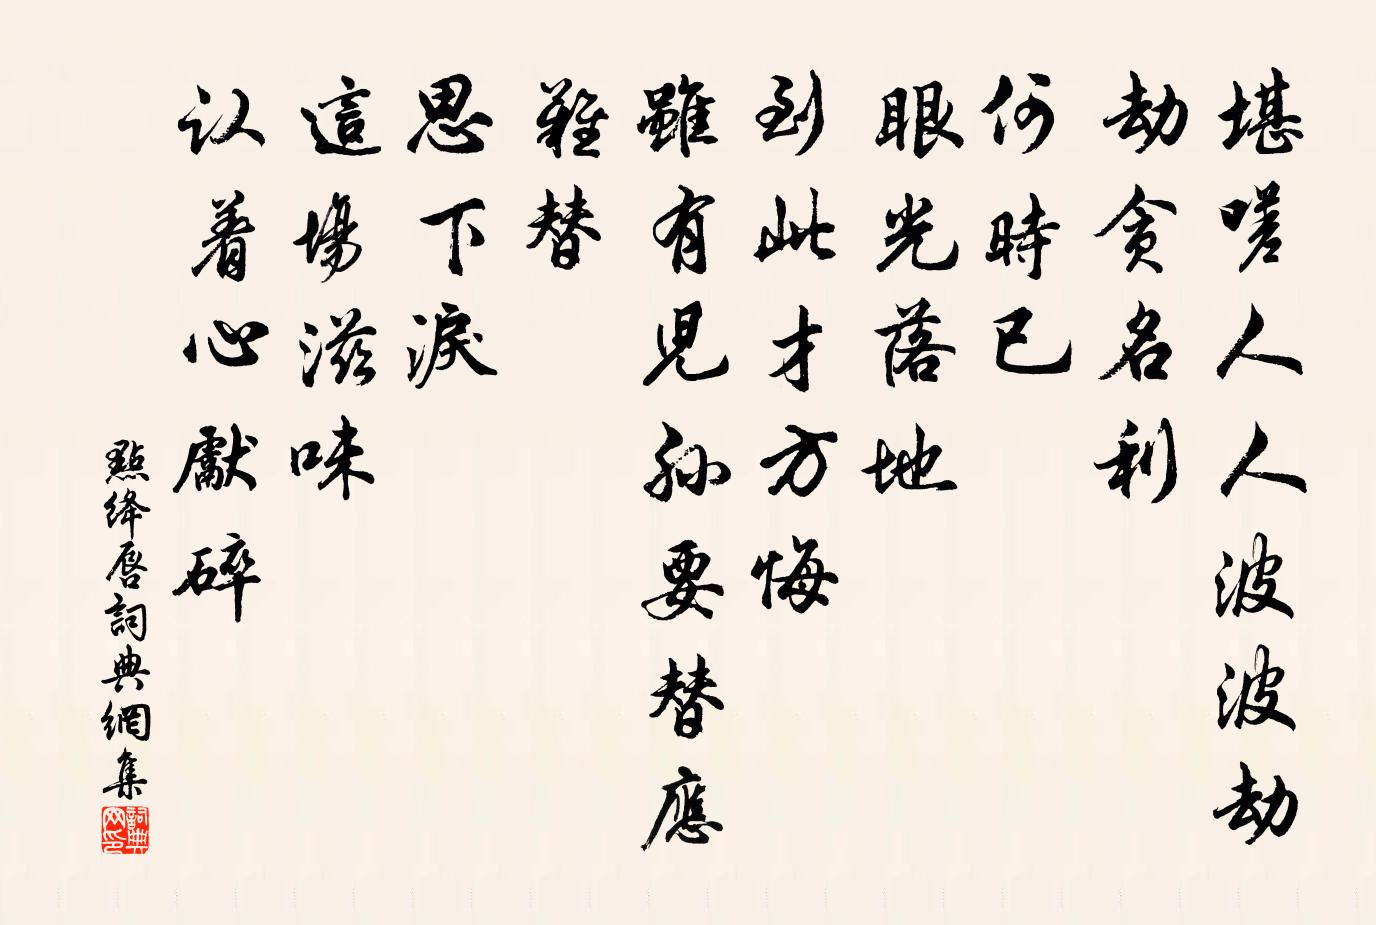 堪嗟人人波波劫
劫貪名利
何時已
眼光落地
到此才方悔
雖有兒孙要替應
難替
思下淚
這場滋味
认着心獻碎
點绛唇詞典網集
詞典
网印